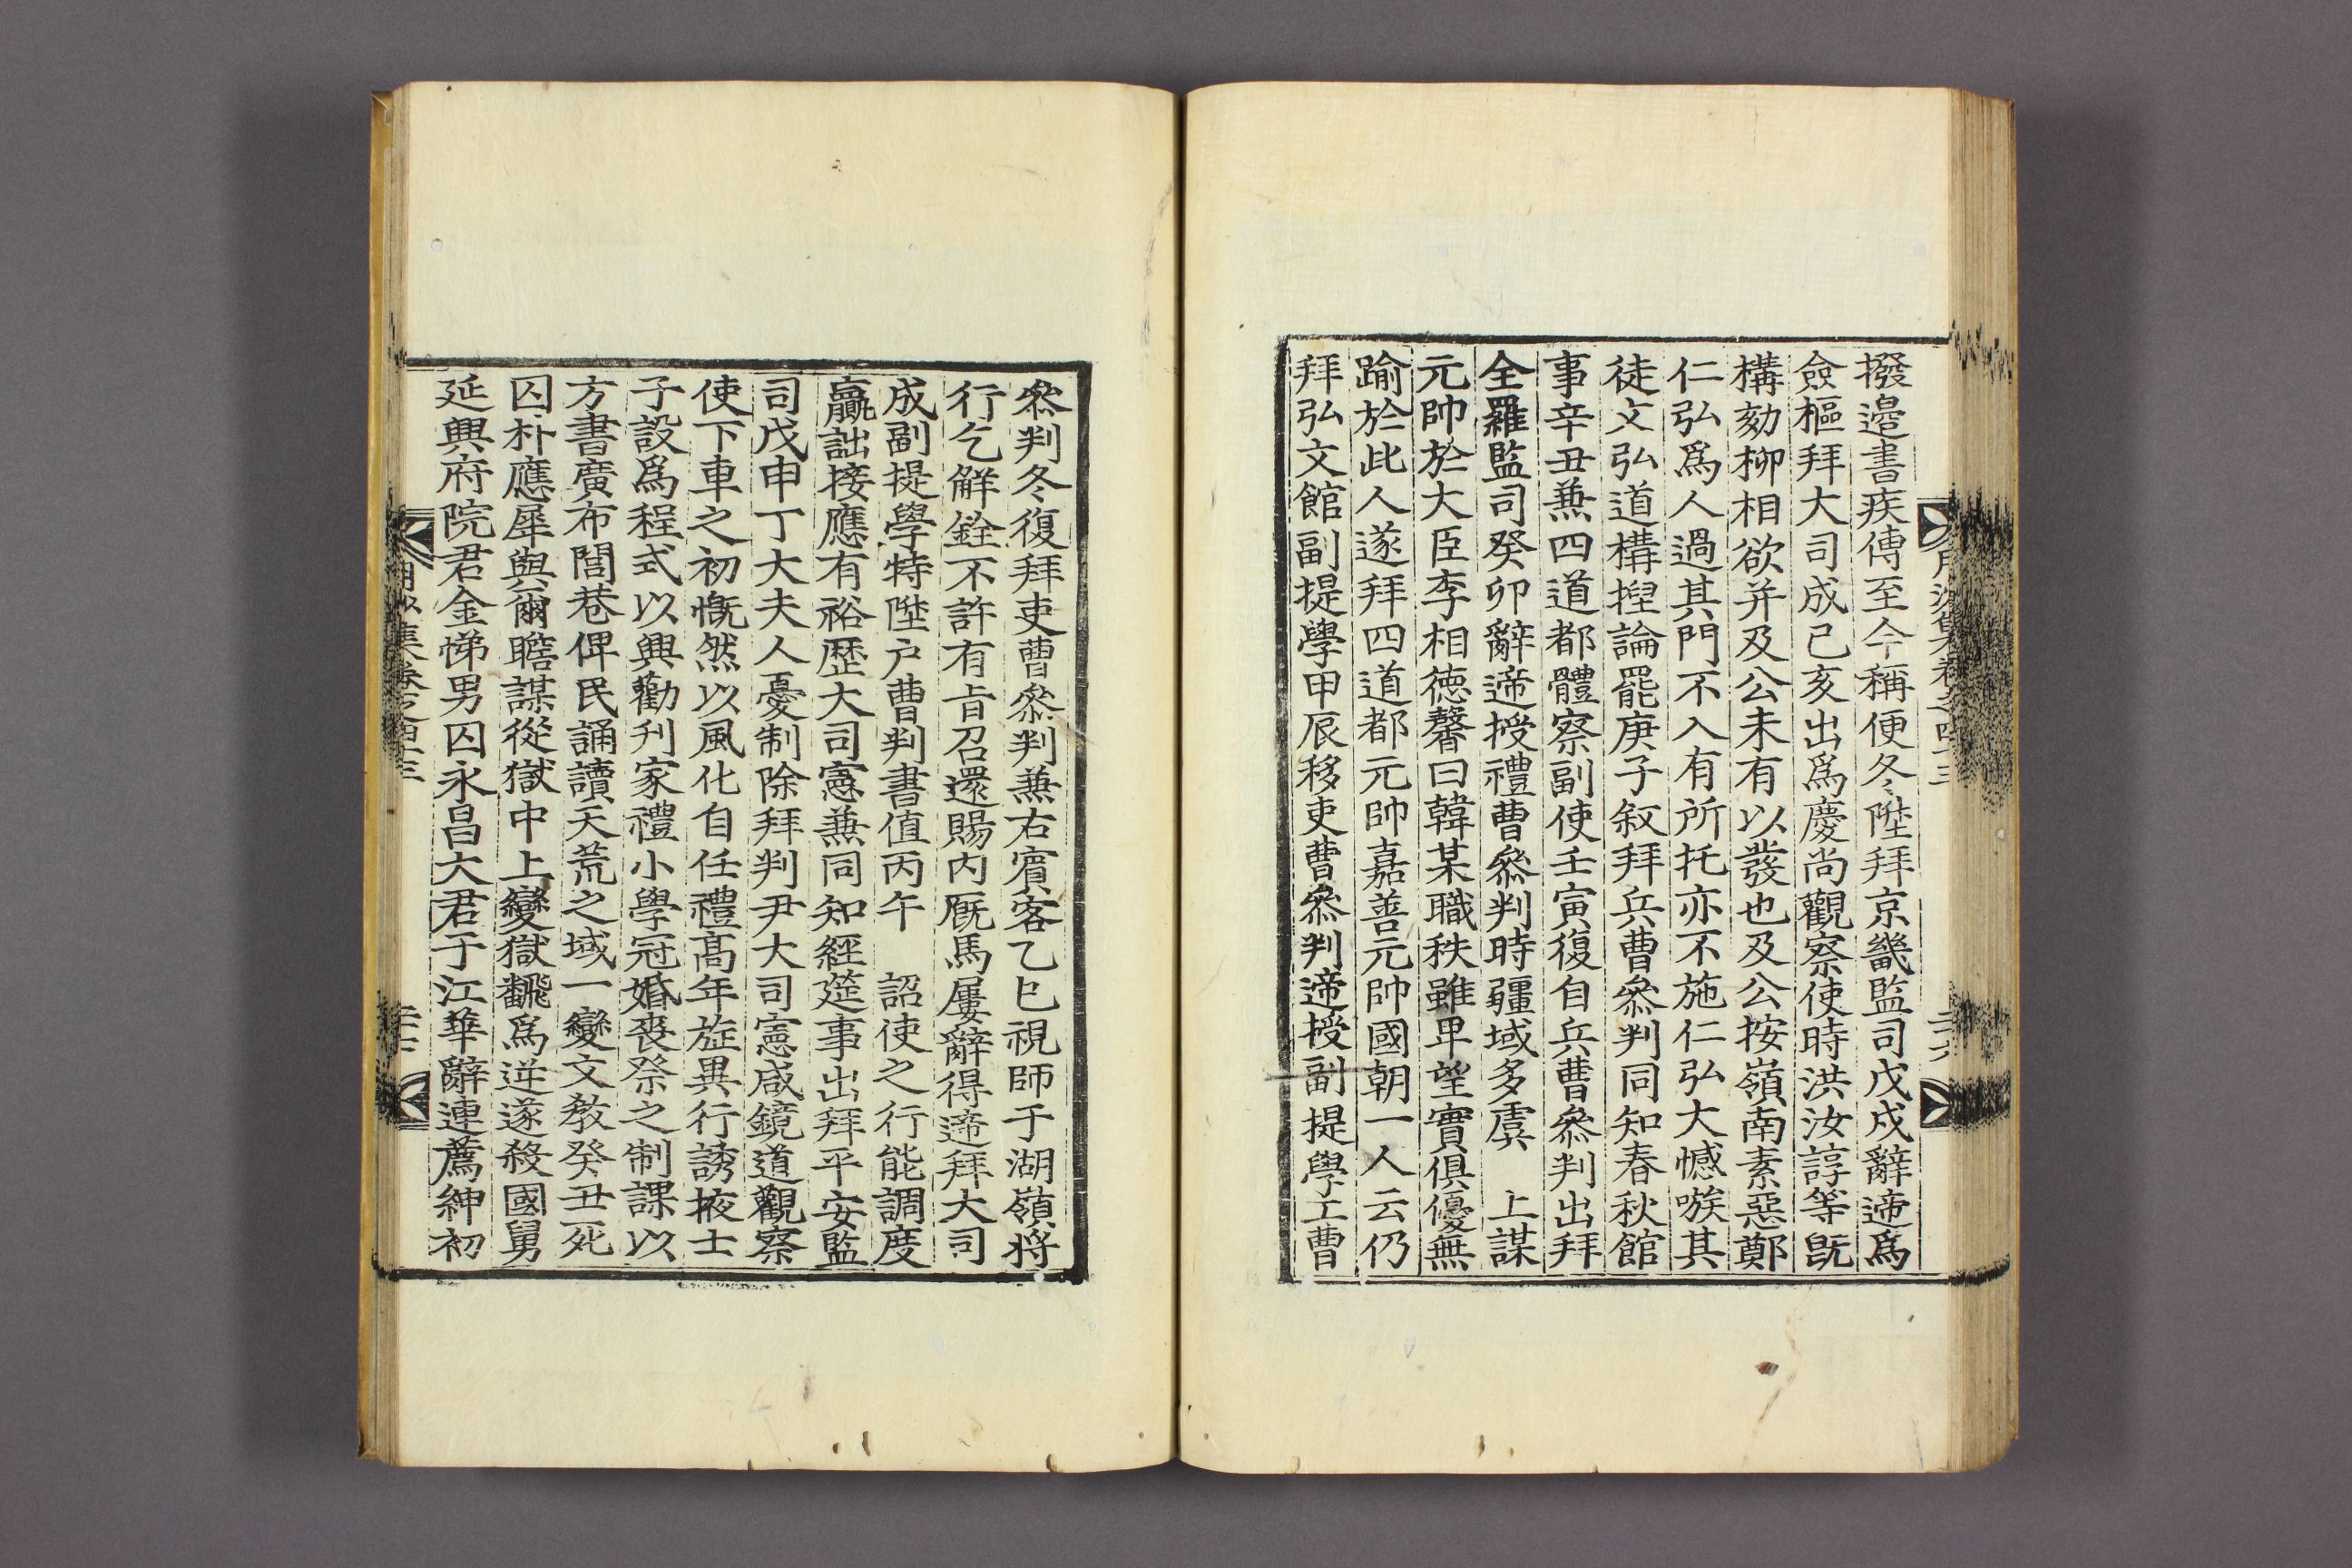 撥邉書疾傳至今稱便冬陞拜京畿監司戊戌辭遆爲
僉樞拜大司成己亥出爲慶尙觀察使時洪汝諄等旣
構劾柳相欲并及公未有以發也及公按嶺南素惡鄭
仁弘爲人過其門不入有所托亦不施仁弘大憾嗾其
徒文弘道構捏論罷庚子叙拜兵曹叅判同知春秋館
事辛丑兼四道都體察副使壬寅復自兵曹叅判出拜
全羅監司癸卯辭遆授禮曹叅判時疆域多虞　上謀
元帥於大臣李相德馨曰韓某職秩雖卑望實俱優無
踰於此人遂拜四道都元帥嘉善元帥國朝一人云仍
拜弘文館副提學甲辰移吏曹叅判遆授副提學工曹
叅判冬復拜吏曹叅判兼右賓客乙巳視師于湖嶺將
行乞解銓不許有旨召還賜內厩馬屢辭得遆拜大司
成副提學特陞戶曹判書值丙午　詔使之行能調度
贏詘接應有裕歷大司憲兼同知經筵事出拜平安監
司戊申丁大夫人憂制除拜判尹大司憲咸鏡道觀察
使下車之初慨然以風化自任禮高年旌異行誘掖士
子設爲程式以興勸刋家禮小學冠婚喪祭之制課以
方書廣布閭巷俾民誦讀天荒之域一變文敎癸丑死
囚朴應犀與爾瞻謀從獄中上變獄飜爲逆遂殺國舅
延興府院君金悌男囚永昌大君于江華辭連薦紳初